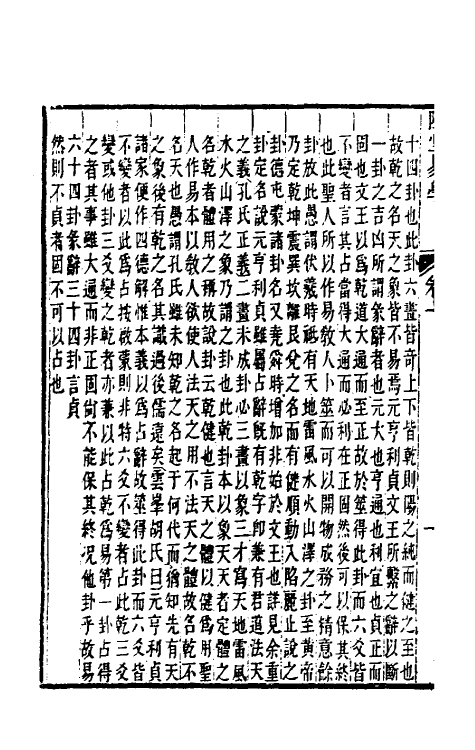 十四卦也此卦六畫皆奇上下皆乾則陽之純而健之至也
故乾之名天之象皆不易焉元亨利貞文王所繫之辭以斷
一卦之吉凶所謂彖辭者也元大也亨通也利宜也貞正而
固也文王以為乾道大通而至正故於筮得此卦而六爻皆
不變者言其占當得大通而必利在正固然後可以保其終
也此聖人所以作易教人卜筮而可以開物成務之精意餘
卦放此愚謂伏羲時祗有天地雷風水火山澤之卦至黃帝
乃定乾坤震巽坎離艮兌之名而有健順動入陷麗止說之
卦德屯蒙諸卦名又堯舜時增加非始於文王也詳見余重
卦定名說元亨利貞雖屬占辭旣有乾字即兼有君道法天
之義孔氏正義二畫未成卦必三畫以象三才寫天地雷風
水火山澤之象乃謂之卦也此乾卦本以象天天者定體之
名乾者體用之稱故說卦云乾健也言天之體以健為用聖
人作易本以敎人欲使人法天之用不法天之體故名乾不
名天也愚謂孔氏雖未知乾之名起于何代而猶知先有天
之象後有乾之名其識過後儒遠矣雲峯胡氏曰元亨利貞
諸家便作四德解惟本義以為占辭故筮得此卦而六爻皆
不變者以此為占按啟蒙則非特六爻不變者占此乾三爻
變或他卦三爻變之乾者亦兼以此占乾為易第一卦占得
之者其事雖大通而非正固尚不能保其終況他卦乎故易
六十四卦彖辭三十四卦言貞
然則不貞者固不可以占也